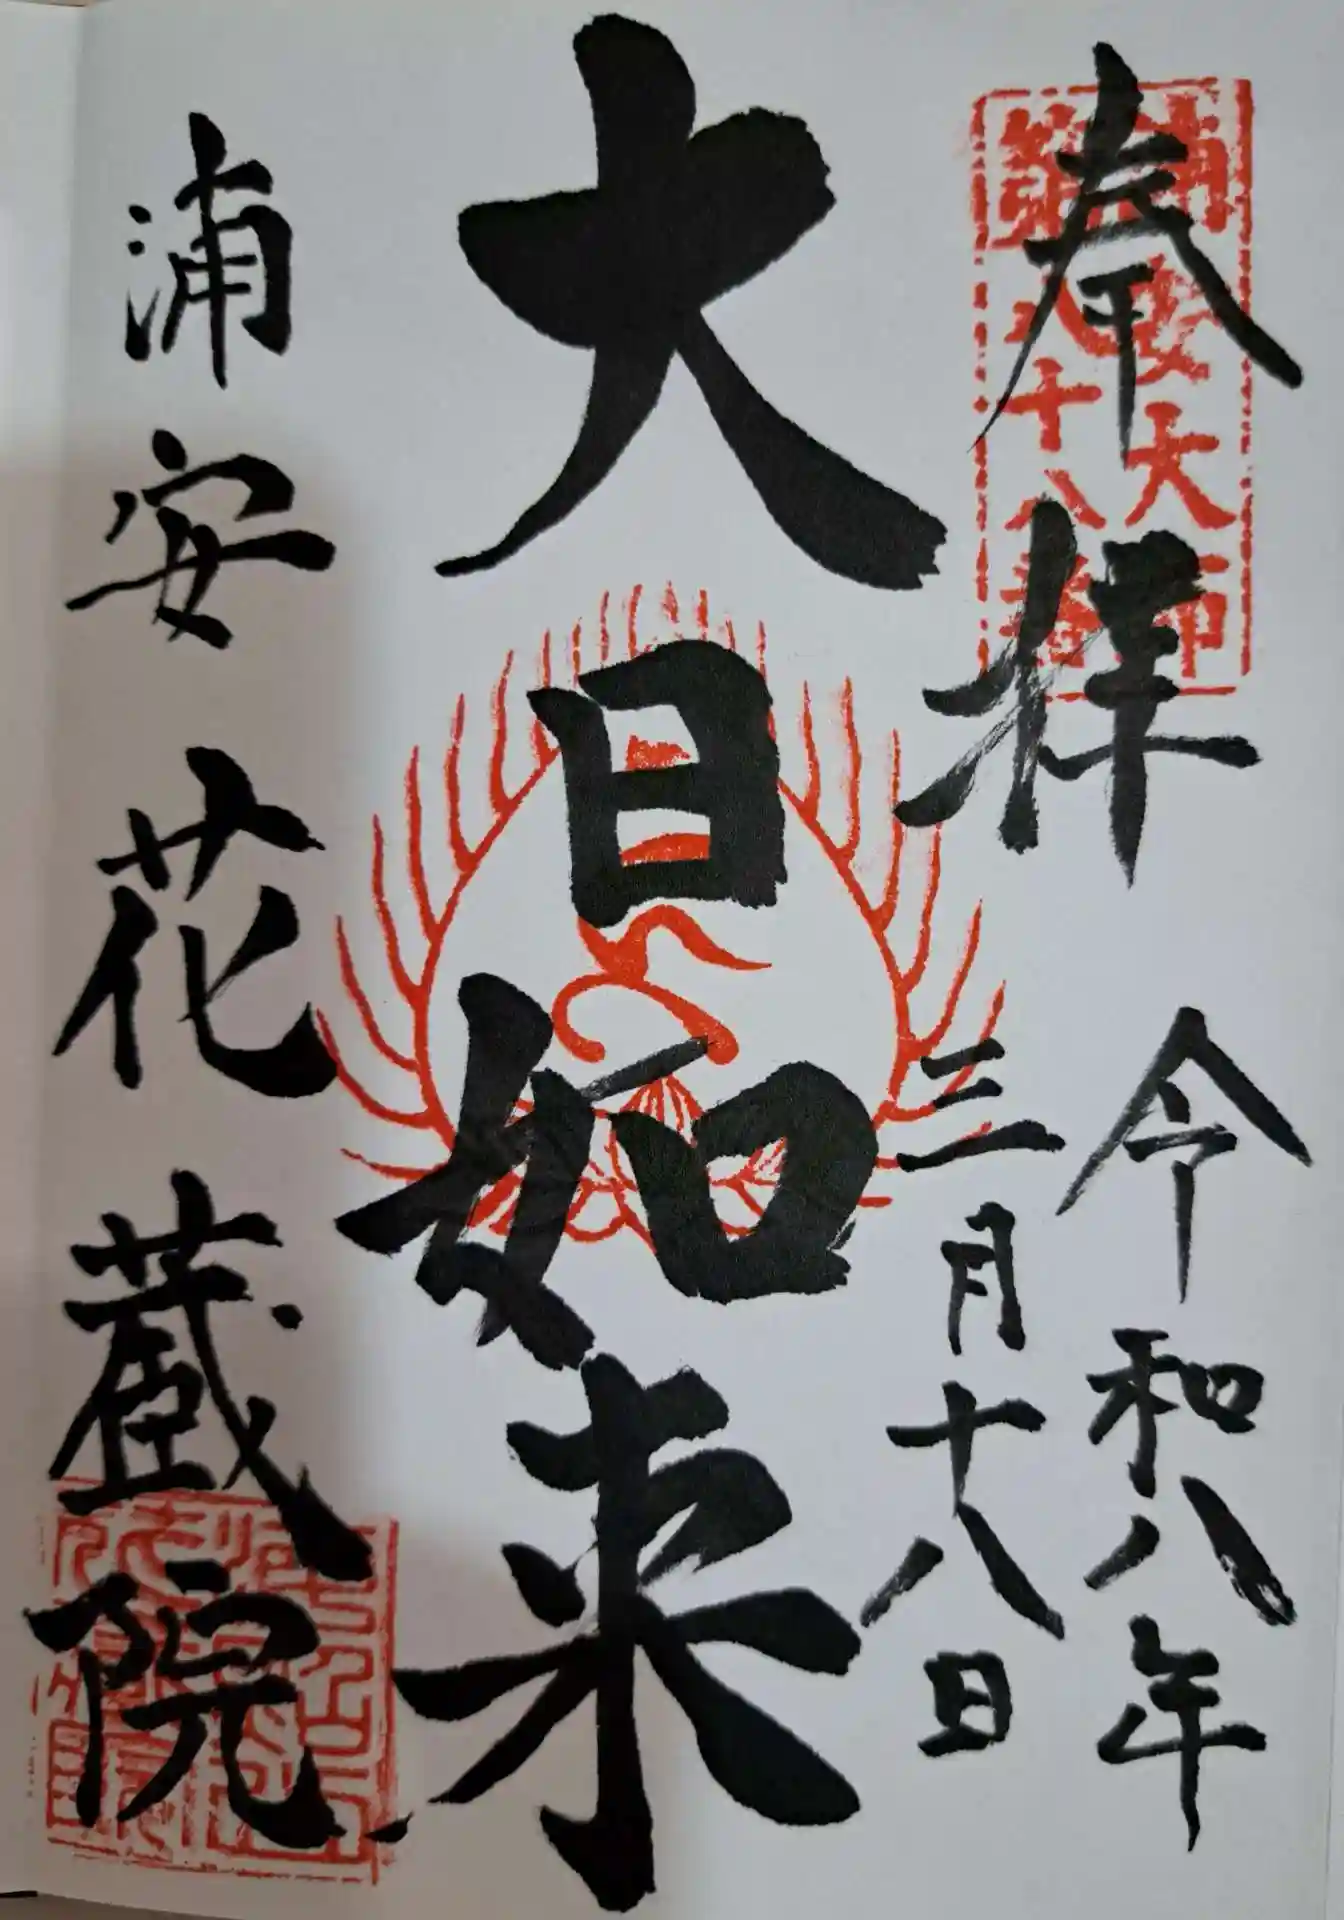 奉拝
令和八年
三月十八日
大日如来
浦安花蔵院
浦安大師
第八十八番